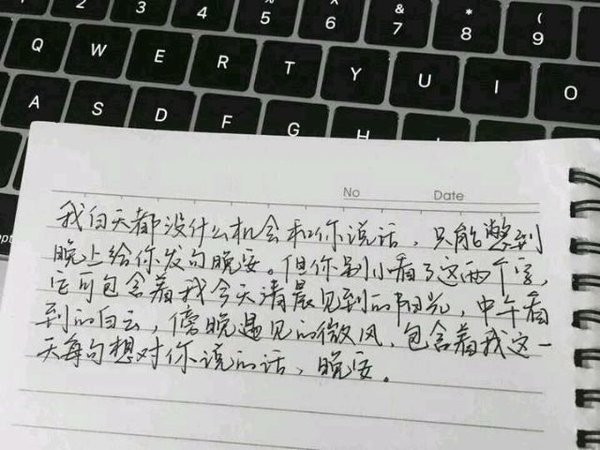 $ 4
% 5
^ 6
& 7
* 8
( 9
Q W E R T Y U I O
A S D F G H
No Date
我白天都没什么机会和你说话，只能憋到
晚上给你发句晚安。但你别小看了这两个字，
它可包含着我今天清晨见到的阳光，中午看
到的白云，傍晚遇见的微风，包含着我这一
天每句想对你说的话，晚安。